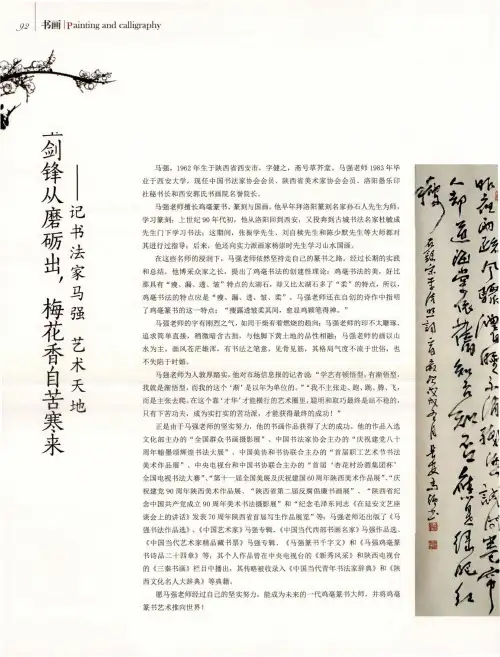 92 书画 Painting and calligraphy
宝剑锋从磨砺出，梅花香自苦寒来
——记书法家马强 艺术天地
马强，1962年生于陕西省西安市，字健之，斋号草芥堂。马强老师1985年毕
业于西安大学，现任中国书法家协会会员、陕西省美术家协会会员、洛阳墨乐印
社秘书长和西安郭氏书画院名誉院长。
马强老师擅长鸡毫篆书、篆刻与国画，他早年拜洛阳篆刻名家孙石人先生为师，
学习篆刻；上世纪90年代初，他从洛阳回到西安，又投奔到古城书法名家杜敏成
先生门下学习书法；这期间，其振学先生、刘自椟先生和陈少默先生等大师都对
其进行过指导；后来，他还向实力派画家杨崇时先生学习山水国画。
在这些名师的浸润下，马强老师依然坚持走自己的篆书之路，经过长期的实践
和总结，他博采众家之长，提出了鸡毫书法的创建性理论：鸡毫书法的美，好比
那具有“瘦、漏、透、皱”特点的太湖石，却又比太湖石多了“柔”的特点，所以，
鸡毫书法的特点应是“瘦、漏、透、皱、柔”。马强老师还在自创的诗作中指明
了鸡毫篆书的这一特点：“瘦漏透皱柔其间，愈显鸡颖笔得神。”
马强老师的字有刚烈之气，如同干柴有着燃烧的趋向；马强老师的印不大雕琢，
追求简单直接，稍微暗含古拙，与他脚下黄土地的品性相融；马强老师的画以山
水为主，画风苍茫雄浑，有书法之笔意，见骨见筋，其格局气度不流于世俗，也
不失陷于时媚。
马强老师为人敦厚踏实，他对市场信息报的记者说：“学艺有顿悟型，有渐悟型，
我就是渐悟型，而我的这个‘渐’是以年为单位的。”“我不主张走、跑、跳、腾、飞，
而是主张去爬，在这个靠‘才华’才能横行的艺术圈里，聪明和取巧最终是站不稳的，
只有下苦功夫，成为实打实的苦功派，才能获得最终的成功！”
正是由于马强老师的坚实努力，他的书画作品获得了大的成功。他的作品入选
文化部主办的“全国群众书画摄影展”、中国书法家协会主办的“庆祝建党八十
周年翰墨颂辉煌书法大展”、中国美协和书协联合主办的“首届职工艺术节书法
美术作品展”、中央电视台和中国书协联合主办的“首届‘杏花村汾酒集团杯’
全国电视书法大赛”、“第十一届全国美展及庆祝建国60周年陕西美术作品展”、“庆
祝建党90周年陕西美术作品展、“陕西省第二届反腐倡廉书画展”、“陕西省纪
念中国共产党成立90周年美术书法摄影展”和“纪念毛泽东同志《在延安文艺座
谈会上的讲话》发表70周年陕西省首届写生作品展览”等；马强老师还出版了《马
强书法作品选》、《中国艺术家》马强专辑、《中国当代西部书画名家》马强作品选、
《中国当代艺术家精品藏书票》马强专辑、《马强篆书千字文》和《马强鸡毫篆
书诗品二十四章》等；其个人作品曾在中央电视台的《新秀风采》和陕西电视台
的《三秦书画》栏目中播出，其传略被收录入《中国当代青年书法家辞典》和《陕
西文化名人大辞典》等典籍。
愿马强老师经过自己的坚实努力，能成为未来的一代鸡毫篆书大师，并将鸡毫
篆书艺术推向世界！
昨夜雨疏风骤浓睡不消残酒试问卷帘
人却道海棠依旧知否知否应是绿肥红
瘦